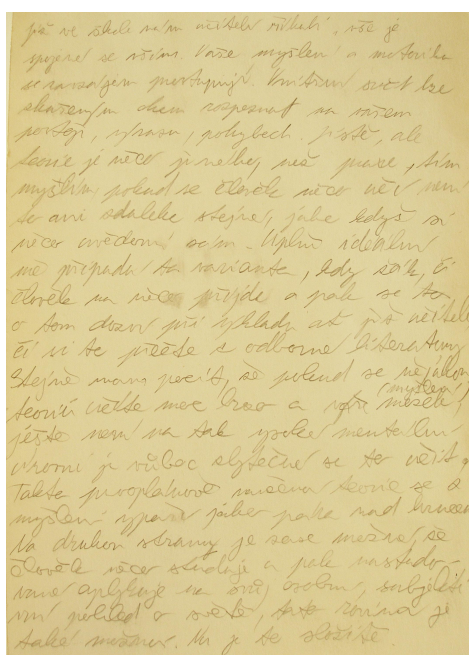 již ve škole nám učitelé říkali, vše je
spojené se vším. Vaše myšlení a motorika
se navzájem prostupují. Vnitřní svět lze
zkušeným okem rozpoznat na vašem
postoji, výrazu, pohybech. Jistě, ale
teorie je něco jiného, než praxe, tím
myslím, pokud se člověk něco učí, není
to ani zdaleka stejné, jako když si
něco uvědomí sám. Úplně ideální
mě připadá ta varianta, kdy žák, či
člověk na něco přijde a pak se to
o tom dozví při výkladu ať již učitele
či si to přečte z odborné literatury.
Stejně mám pocit, že pokud se nějakou
teorii učíte moc brzo a váš mozek, (myšlení)
ještě není na tak vysoké mentální
úrovni je vůbec zbytečné se to učit,
takto prvoplánově naučená teorie se z
myšlení vypaří jako pára nad hrncem
Na druhou stranu je zase možné, že
člověk něco studuje a pak
aplikuje na svůj osobní, subjektiv
ní pohled o světě, tato rovina je
také možná. No je to složité.